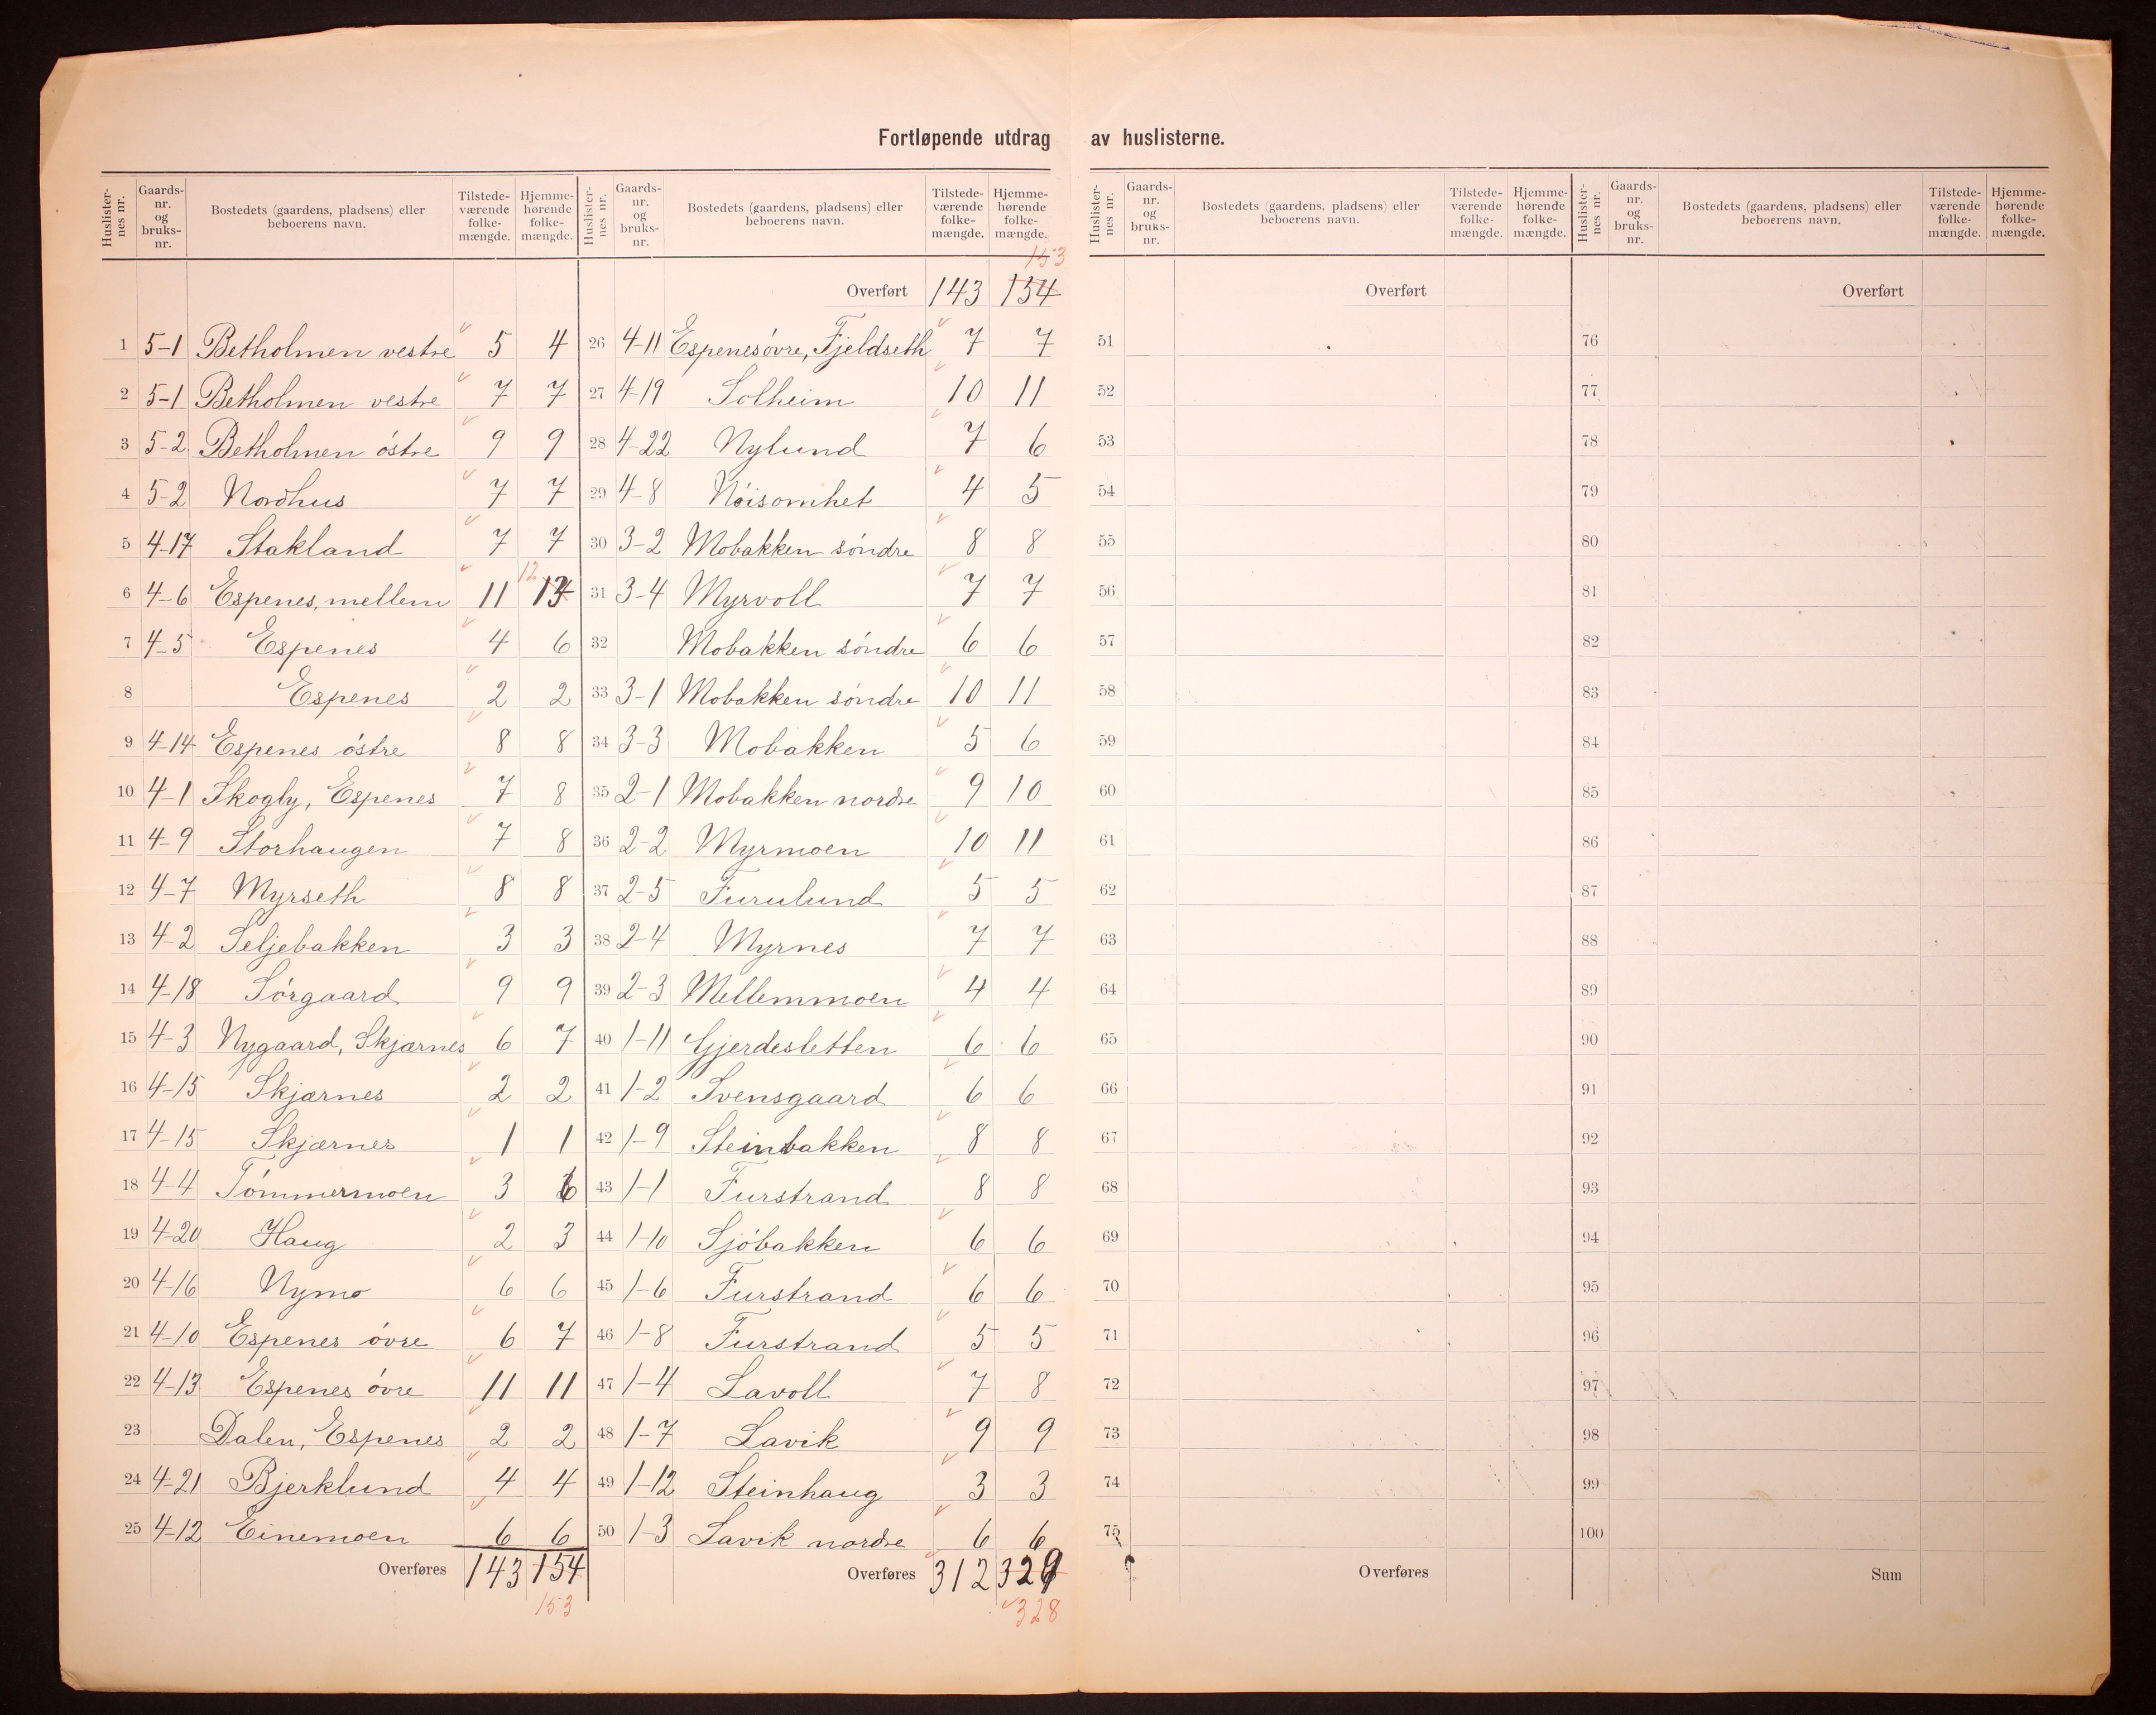 Fortløpende utdrag av huslisterne.
Huslisternes nr. Gaards-nr. og bruks-nr. Bostedets (gaardens, pladsens) eller beboerens navn. Tilstedeværende folkemængde. Hjemmehørende folkemængde.
1 5-1 Betholmen vestre 5 4
2 5-1 Betholmen vestre 7 7
3 5-2 Betholmen östre 9 9
4 5-2 Nordhus 7 7
5 4-17 Stakland 7 7
6 4-6 Espenes, mellem 11 13 12
7 4-5 Espenes 4 6
8 Espenes 2 2
9 4-14 Espenes östre 8 8
10 4-1 Skogly, Espenes 7 8
11 4-9 Storhaugen 7 8
12 4-7 Myrseth 8 8
13 4-2 Seljebakken 3 3
14 4-18 Sörgaard 9 9
15 4-3 Nygaard, Skjærnes 6 7
16 4-15 Skjærnes 2 2
17 4-15 Skjærnes 1 1
18 4-4 Tömmermoen 3 6
19 4-20 Haug 2 3
20 4-16 Nymo 6 6
21 4-10 Espenes övre 6 7
22 4-13 Espenes övre 11 11
23 Dalen, Espenes 2 2
24 4-21 Bjerklund 4 4
25 4-12 Einemoen 6 6
Overføres 143 154
153
Huslisternes nr. Gaards-nr. og bruks-nr. Bostedets (gaardens, pladsens) eller beboerens navn. Tilstedeværende folkemængde. Hjemmehørende folkemængde.
153
Overført 143 154
26 4-11 Espenes övre, Fjeldseth 7 7
27 4-19 Solheim 10 11
28 4-22 Nylund 7 6
29 4-8 Nöisomhet 4 5
30 3-2 Mobakken söndre 8 8
31 3-4 Myrvoll 7 7
32 Mobakken söndre 6 6
33 3-1 Mobakken söndre 10 11
34 3-3 Mobakken 5 6
35 2-1 Mobakken nordre 9 10
36 2-2 Myrmoen 10 11
37 2-5 Furulund 5 5
38 2-4 Myrnes 7 7
39 2-3 Mellemmoen 4 4
40 1-11 Gjerdesletten 6 6
41 1-2 Svensgaard 6 6
42 1-9 Steinbakken 8 8
43 1-1 Furstrand 8 8
44 1-10 Sjöbakken 6 6
45 1-6 Furstrand 6 6
46 1-8 Furstrand 5 5
47 1-4 Lavoll 7 8
48 1-7 Lavik 9 9
49 1-12 Steinhaug 3 3
50 1-3 Lavik nordre 6 6
Overføres 312 329
328
Huslisternes nr. Gaards-nr. og bruks-nr. Bostedets (gaardens, pladsens) eller beboerens navn. Tilstedeværende folkemængde. Hjemmehørende folkemængde.
Overført
51
52
53
54
55
56
57
58
59
60
61
62
63
64
65
66
67
68
69
70
71
72
73
74
75
Overføres
Huslisternes nr. Gaards-nr. og bruks-nr. Bostedets (gaardens, pladsens) eller beboerens navn. Tilstedeværende folkemængde. Hjemmehørende folkemængde.
Overført
76
77
78
79
80
81
82
83
84
85
86
87
88
89
90
91
92
93
94
95
96
97
98
99
100
Sum